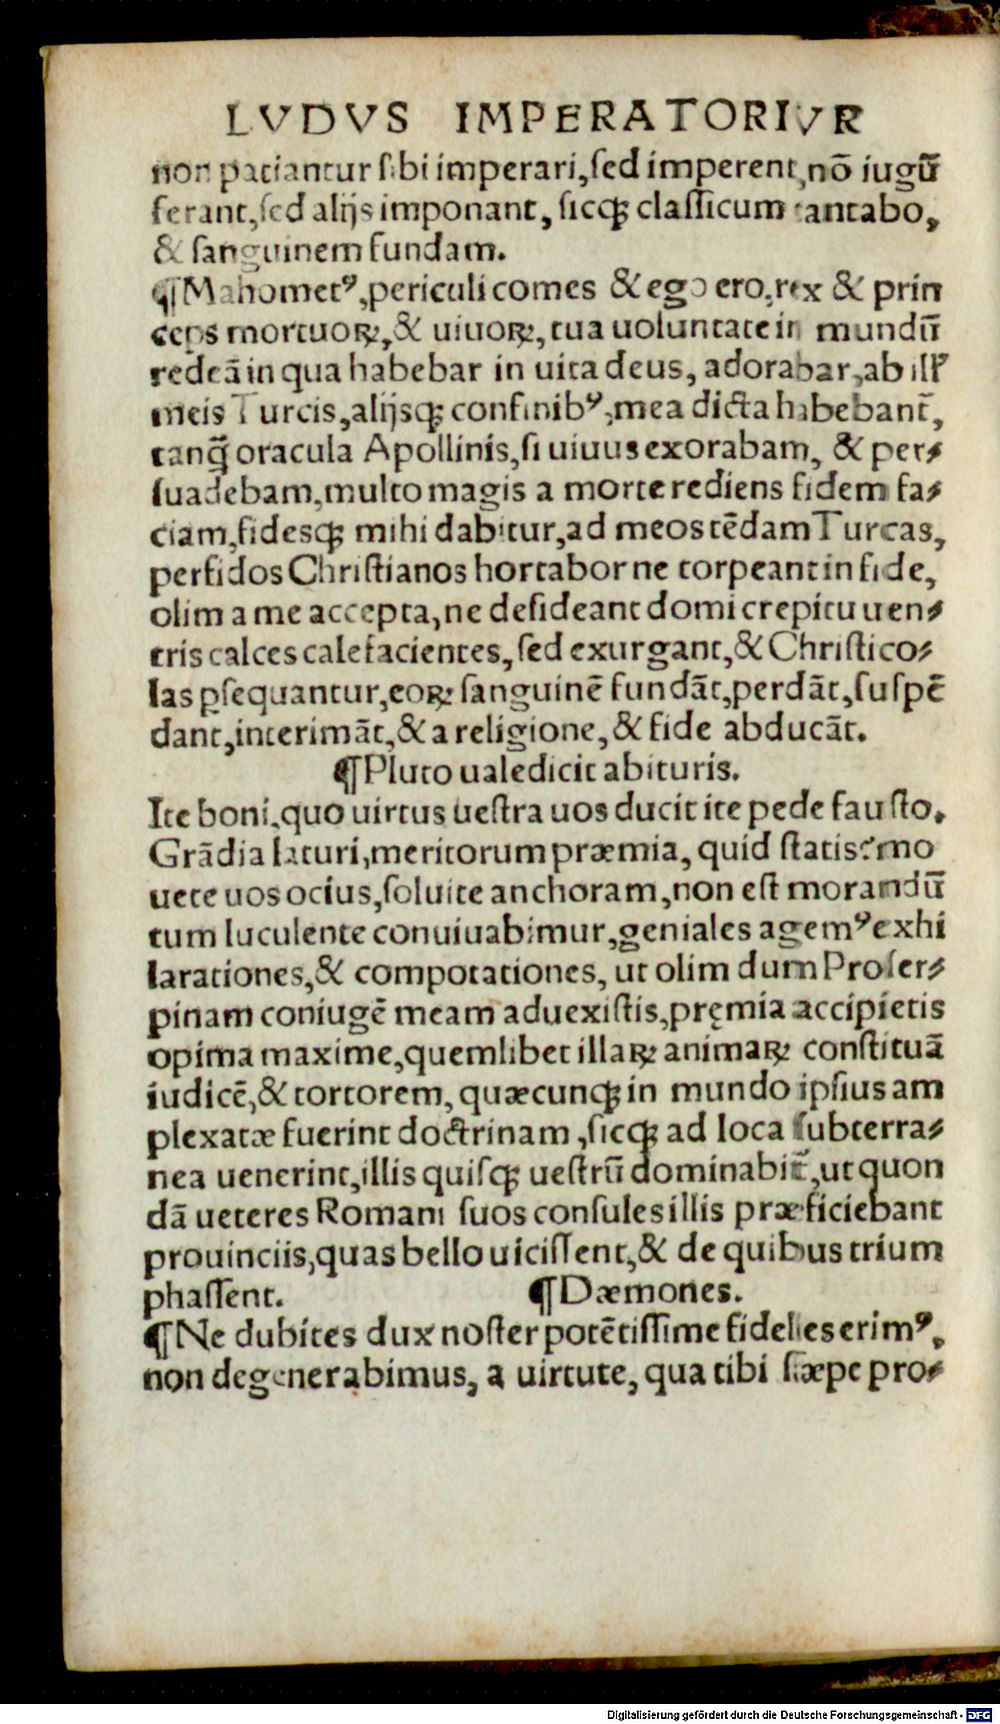 LVDVS IMPERATORIVR
non patiantur sibi imperari, sed imperent, nō iugū
ferant, sed alijs imponant, sicqꝫ classicum cantabo,
& sanguinem fundam.
¶Mahometꝰ, periculi comes & ego ero, rex & prin
ceps mortuoꝝ, & uiuoꝝ, tua uoluntate in mundū
redeā in qua habebar in uita deus, adorabar, ab ill'
meis Turcis, alijsqꝫ confinibꝰ, mea dicta habebant̃,
tanq̃ oracula Apollinis, si uiuus exorabam, & per⸗
suadebam, multo magis a morte rediens fidem fa⸗
ciam, fidesqꝫ mihi dabitur, ad meos tēdam Turcas,
perfidos Christianos hortabor ne torpeant in fide,
olim a me accepta, ne desideant domi crepitu uen⸗
tris calces calefacientes, sed exurgant, & Christico⸗
las ꝑsequantur, eoꝝ sanguinē fundāt, perdāt, suspē
dant, interimāt, & a religione, & fide abducāt.
¶Pluto ualedicit abituris.
Ite boni, quo uirtus uestra uos ducit ite pede fausto.
Grādia laturi, meritorum præmia, quid statis? mo
uete uos ocius, soluite anchoram, non est morandū
tum luculente conuiuabimur, geniales agemꝰ exhi
larationes, & compotationes, ut olim dum Proser⸗
pinam coniugē meam aduexistis, pręmia accipietis
opima maxime, quemlibet illaꝝ animaꝝ constituā
iudicē, & tortorem, quæcunqꝫ in mundo ipsius am
plexatæ fuerint doctrinam, sicqꝫ ad loca subterra⸗
nea uenerint, illis quisqꝫ uestrū dominabit̃, ut quon
dā ueteres Romani suos consules illis præficiebant
prouinciis, quas bello uicissent, & de quibus trium
phassent. ¶Dæmones.
¶Ne dubites dux noster potētissime fideles erimꝰ,
non degenerabimus, a uirtute, qua tibi sæpe pro⸗
Digitalisierung gefördert durch die Deutsche Forschungsgemeinschaft - DFG